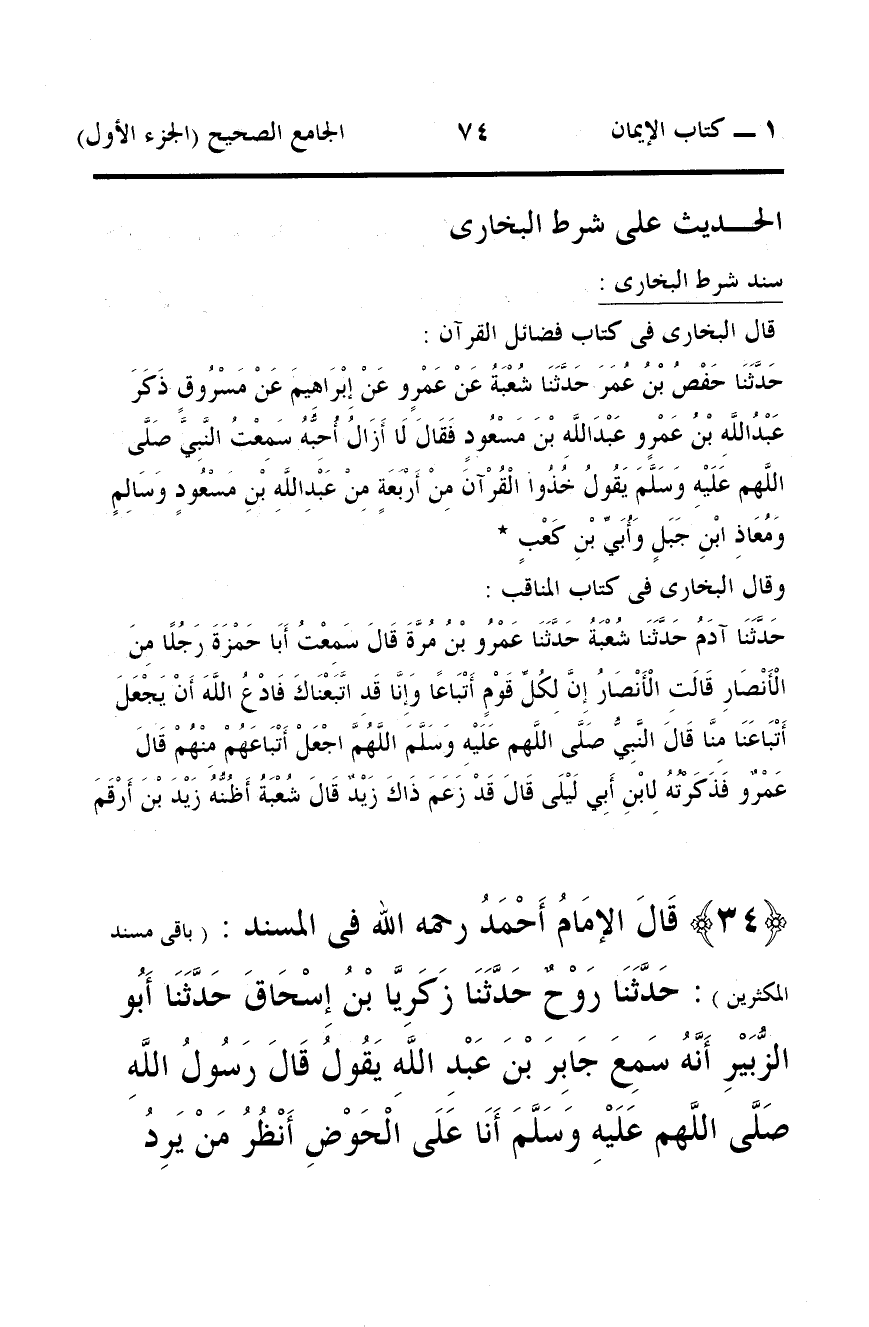 ١ ـ كتاب الإيمان ٧٤ الجامع الصحيح (الجزء الأول)
الحـــديث على شرط البخارى
سند شرط البخارى :
قال البخارى فى كتاب فضائل القرآن :
حَدَّثَنَا حَفْصُ بْنُ عُمَرَ حَدَّثَنَا شُعْبَةُ عَنْ عَمْرٍو عَنْ إِبْرَاهِيمَ عَنْ مَسْرُوقٍ ذَكَرَ
عَبْدُاللَّهِ بْنُ عَمْرٍو عَبْدَاللَّهِ بْنَ مَسْعُودٍ فَقَالَ لَا أَزَالُ أُحِبُّهُ سَمِعْتُ النَّبِيَّ صَلَّى
اللَّهم عَلَيْهِ وَسَلَّمَ يَقُولُ خُذُوا الْقُرْآنَ مِنْ أَرْبَعَةٍ مِنْ عَبْدِاللَّهِ بْنِ مَسْعُودٍ وَسَالِمٍ
وَمُعَاذِ ابْنِ جَبَلٍ وَأُبَيِّ بْنِ كَعْبٍ *
وقال البخارى فى كتاب المناقب :
حَدَّثَنَا آدَمُ حَدَّثَنَا شُعْبَةُ حَدَّثَنَا عَمْرُو بْنُ مُرَّةَ قَالَ سَمِعْتُ أَبَا حَمْزَةَ رَجُلًا مِنَ
الْأَنْصَارِ قَالَتِ الْأَنْصَارُ إِنَّ لِكُلِّ قَوْمٍ أَتْبَاعًا وَإِنَّا قَدِ اتَّبَعْنَاكَ فَادْعُ اللَّهَ أَنْ يَجْعَلَ
أَتْبَاعَنَا مِنَّا قَالَ النَّبِيُّ صَلَّى اللَّهم عَلَيْهِ وَسَلَّمَ اللَّهُمَّ اجْعَلْ أَتْبَاعَهُمْ مِنْهُمْ قَالَ
عَمْرٌو فَذَكَرْتُهُ لِابْنِ أَبِي لَيْلَى قَالَ قَدْ زَعَمَ ذَاكَ زَيْدٌ قَالَ شُعْبَةُ أَظُنُّهُ زَيْدَ بْنَ أَرْقَمَ
﴿٣٤﴾ قَالَ الإِمَامُ أَحْمَدُ رحمه الله فى المسند : ( باقى مسند
المكثرين ) : حَدَّثَنَا رَوْحٌ حَدَّثَنَا زَكَرِيَّا بْنُ إِسْحَاقَ حَدَّثَنَا أَبُو
الزُّبَيْرِ أَنَّهُ سَمِعَ جَابِرَ بْنَ عَبْدِ اللَّهِ يَقُولُ قَالَ رَسُولُ اللَّهِ
صَلَّى اللَّهم عَلَيْهِ وَسَلَّمَ أَنَا عَلَى الْحَوْضِ أَنْظُرُ مَنْ يَرِدُ